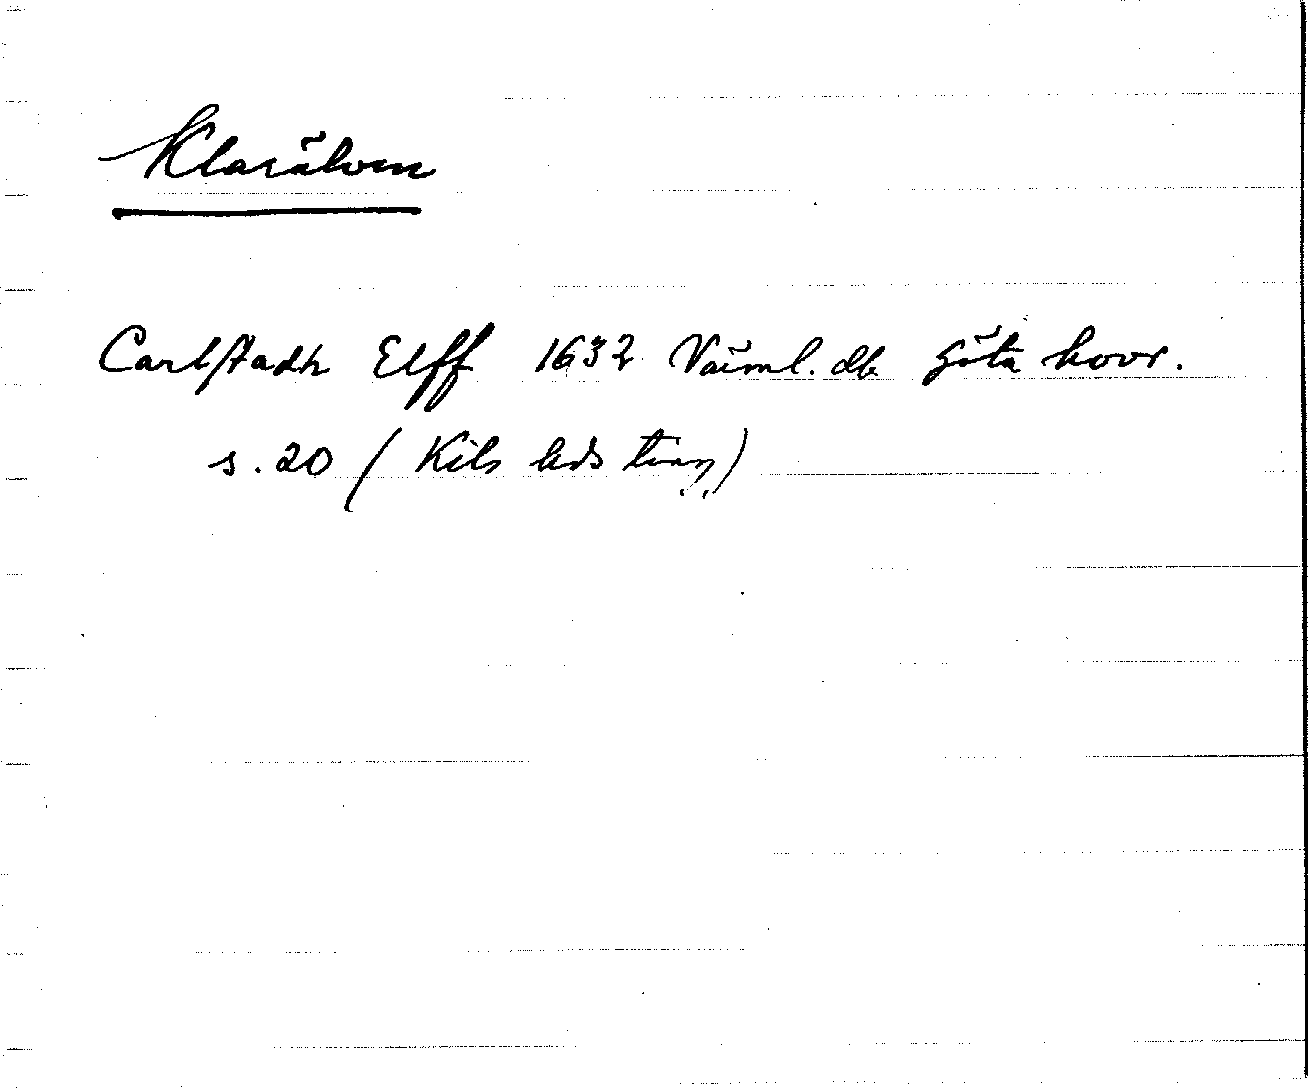 Klarälven
Carlstadh Elff 1632 Värml. db Göta hovr.
s. 20 (Kils hds ting)